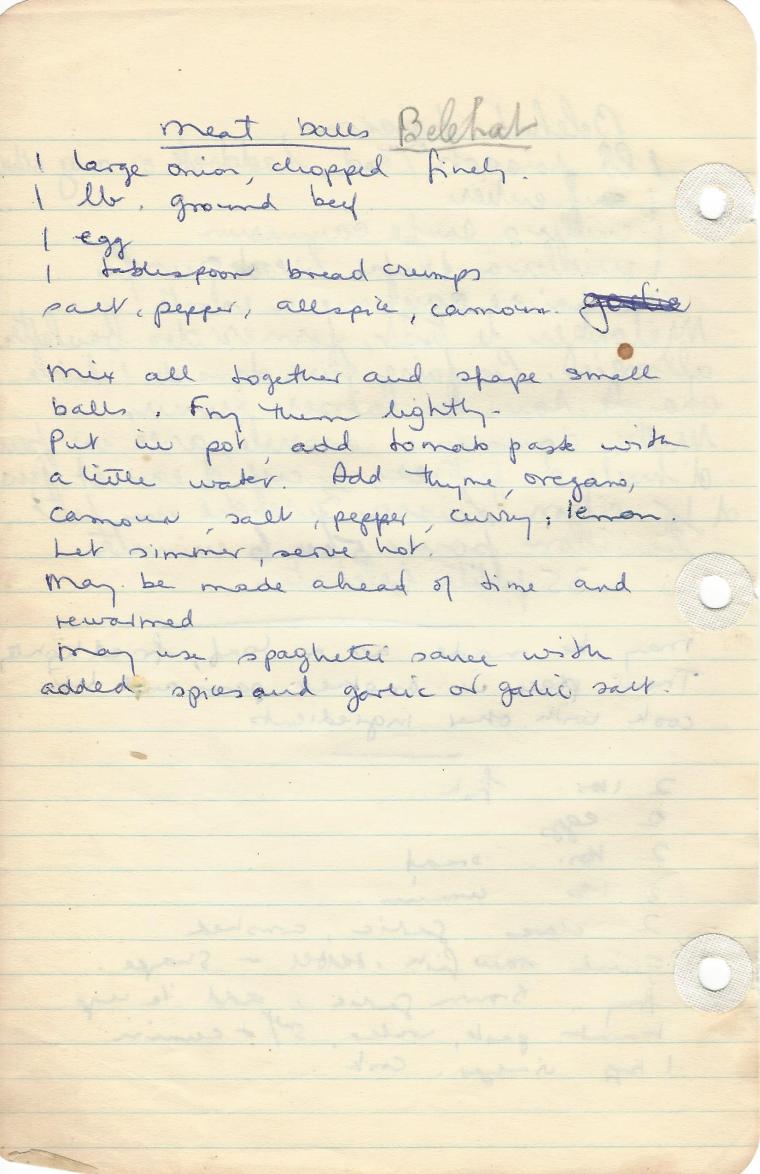 Meat balls Belehat
1 large onion, chopped finely.
1 lb. ground beef
1 egg
1 tablespoon bread crumps
salt, pepper, allspice, camoun. garlic
Mix all together and shape small
balls. Fry them lightly.
Put in pot, add tomato paste with
a little water. Add thyme, oregano,
camoun, salt, pepper, curry, lemon.
Let simmer, serve hot.
May be made ahead of time and
rewarmed
May use spaghetti sauce with
added spices and garlic or garlic salt.